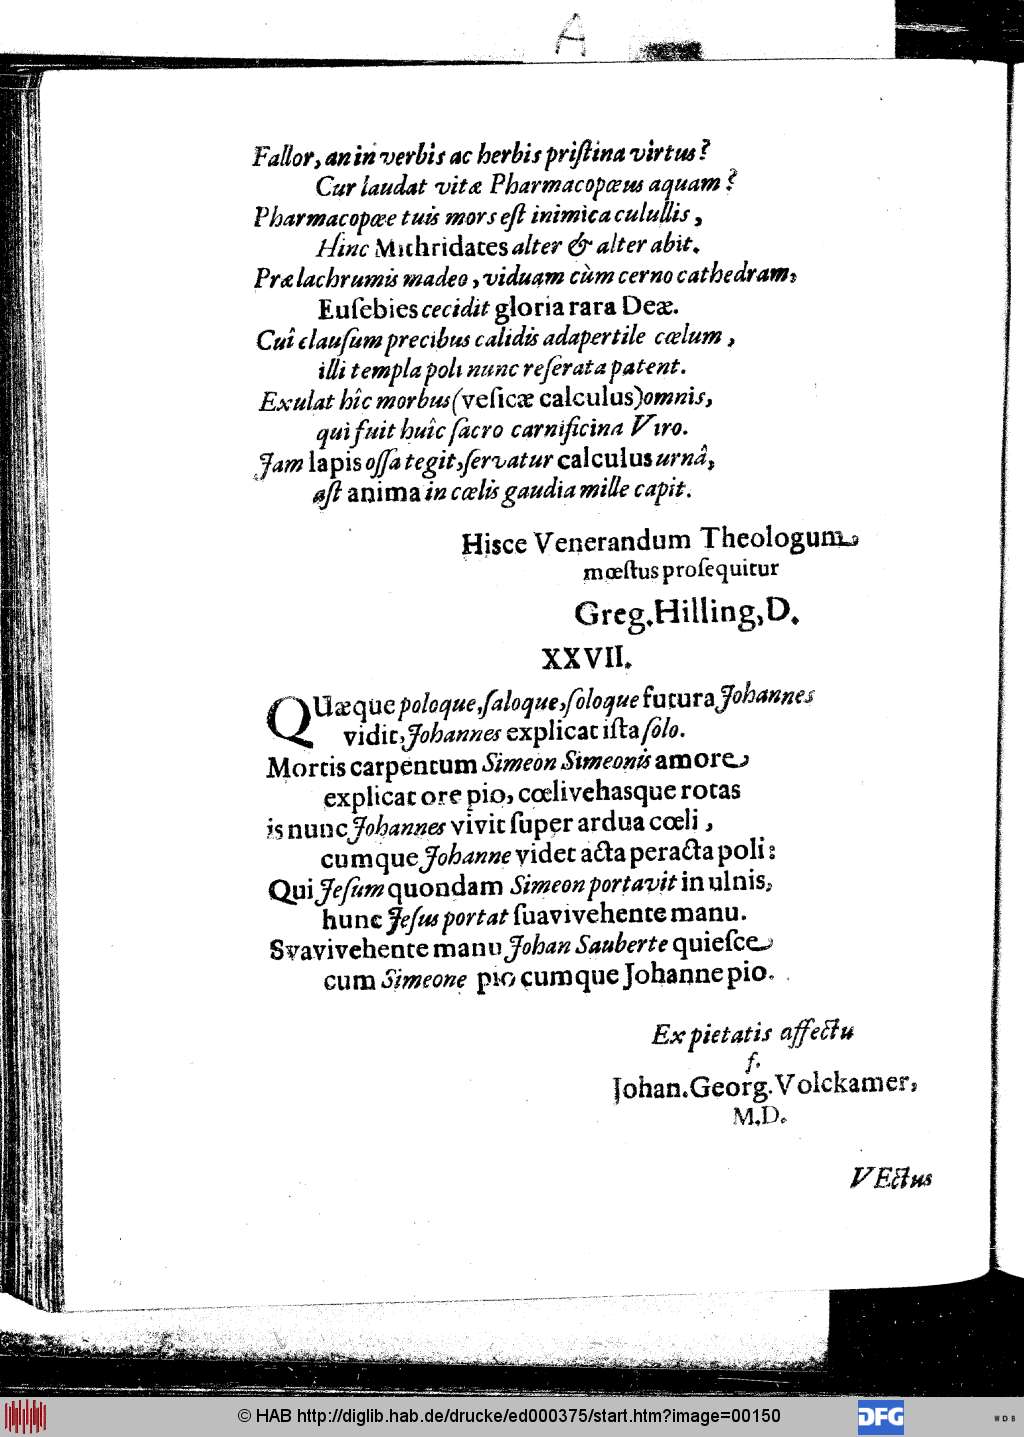 A
Fallor, an in verbis ac herbis priſtina virtus?
Cur laudat vitæ Pharmacopœus aquam?
Pharmacopœe tuis mors eſt inimica culullis,
Hinc Mithridates alter & alter abit.
Præ lachrumis madeo, viduam cùm cerno cathedram,
Euſebies cecidit gloria rara Deæ.
Cuî clauſum precibus calidis adapertile cœlum,
illi templa poli nunc reſerata patent.
Exulat hîc morbus (veſicæ calculus) omnis,
qui fuit huîc ſacro carnificina Viro.
Jam lapis oſſa tegit, ſervatur calculus urnâ,
aſt anima in cœlis gaudia mille capit.
Hisce Venerandum Theologum
mœſtus proſequitur
Greg. Hilling, D.
XXVII.
QUæque poloque, ſaloque, ſoloque futura Johannes
vidit, Johannes explicat iſta ſolo.
Mortis carpentum Simeon Simeonis amore
explicat ore pio, cœlivehasque rotas
is nunc Johannes vivit ſuper ardua cœli,
cumque Johanne videt acta peracta poli:
Qui Jeſum quondam Simeon portavit in ulnis,
hunc Jeſus portat ſuavivehente manu.
Svavivehente manu Johan Sauberte quieſce
cum Simeone pio cumque Johanne pio.
Ex pietatis affectu
f.
Johan. Georg. Volckamer,
M.D.
VEctus
© HAB http://diglib.hab.de/drucke/ed000375/start.htm?image=00150
DFG
WDB